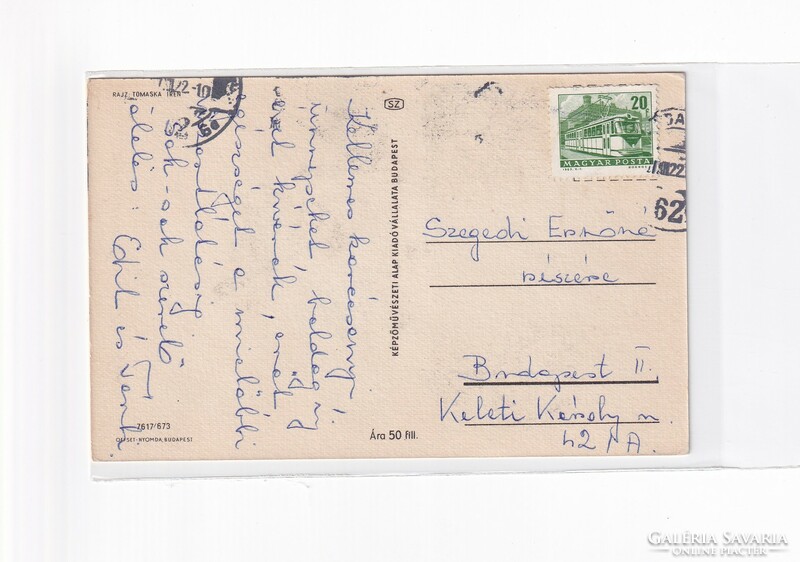 RAJZ: TOMASKA IRÉN
Kellemes karácsonyi
ünnepeket boldog új
évet kívánok, erőt,
egészséget a mielőbbi
viszontlátásig
sok-sok szeretettel
ölelés: Edit és
7617/673
OFFSET-NYOMDA, BUDAPEST
Ára 50 fill.
SZ
KÉPZŐMŰVÉSZETI ALAP KIADÓVÁLLALATA BUDAPEST
20 f
MAGYAR POSTA
22-10
22
62
Szegedi Ernőné
részére
Budapest II.
Keleti Károly u.
42/A.
GALÉRIA SAVARIA
ONLINE PIACTÉR